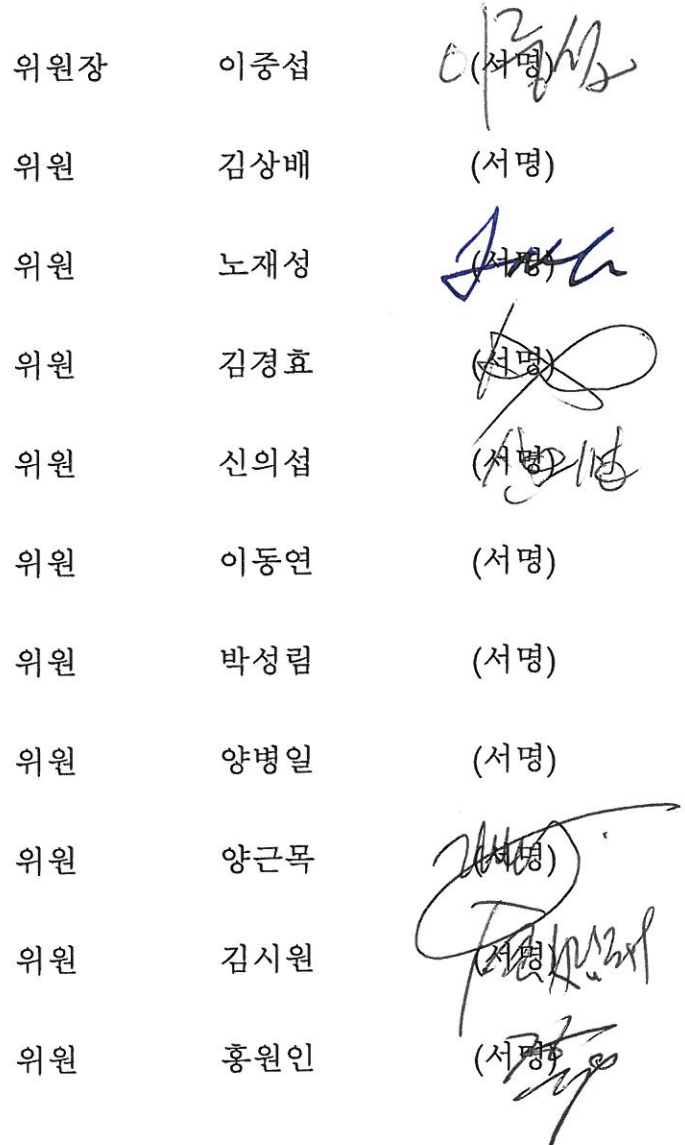 위원장 이중섭 (서명)
위원 김상배 (서명)
위원 노재성 (서명)
위원 김경효 (서명)
위원 신의섭 (서명)
위원 이동연 (서명)
위원 박성림 (서명)
위원 양병일 (서명)
위원 양근목 (서명)
위원 김시원 (서명)
위원 홍원인 (서명)